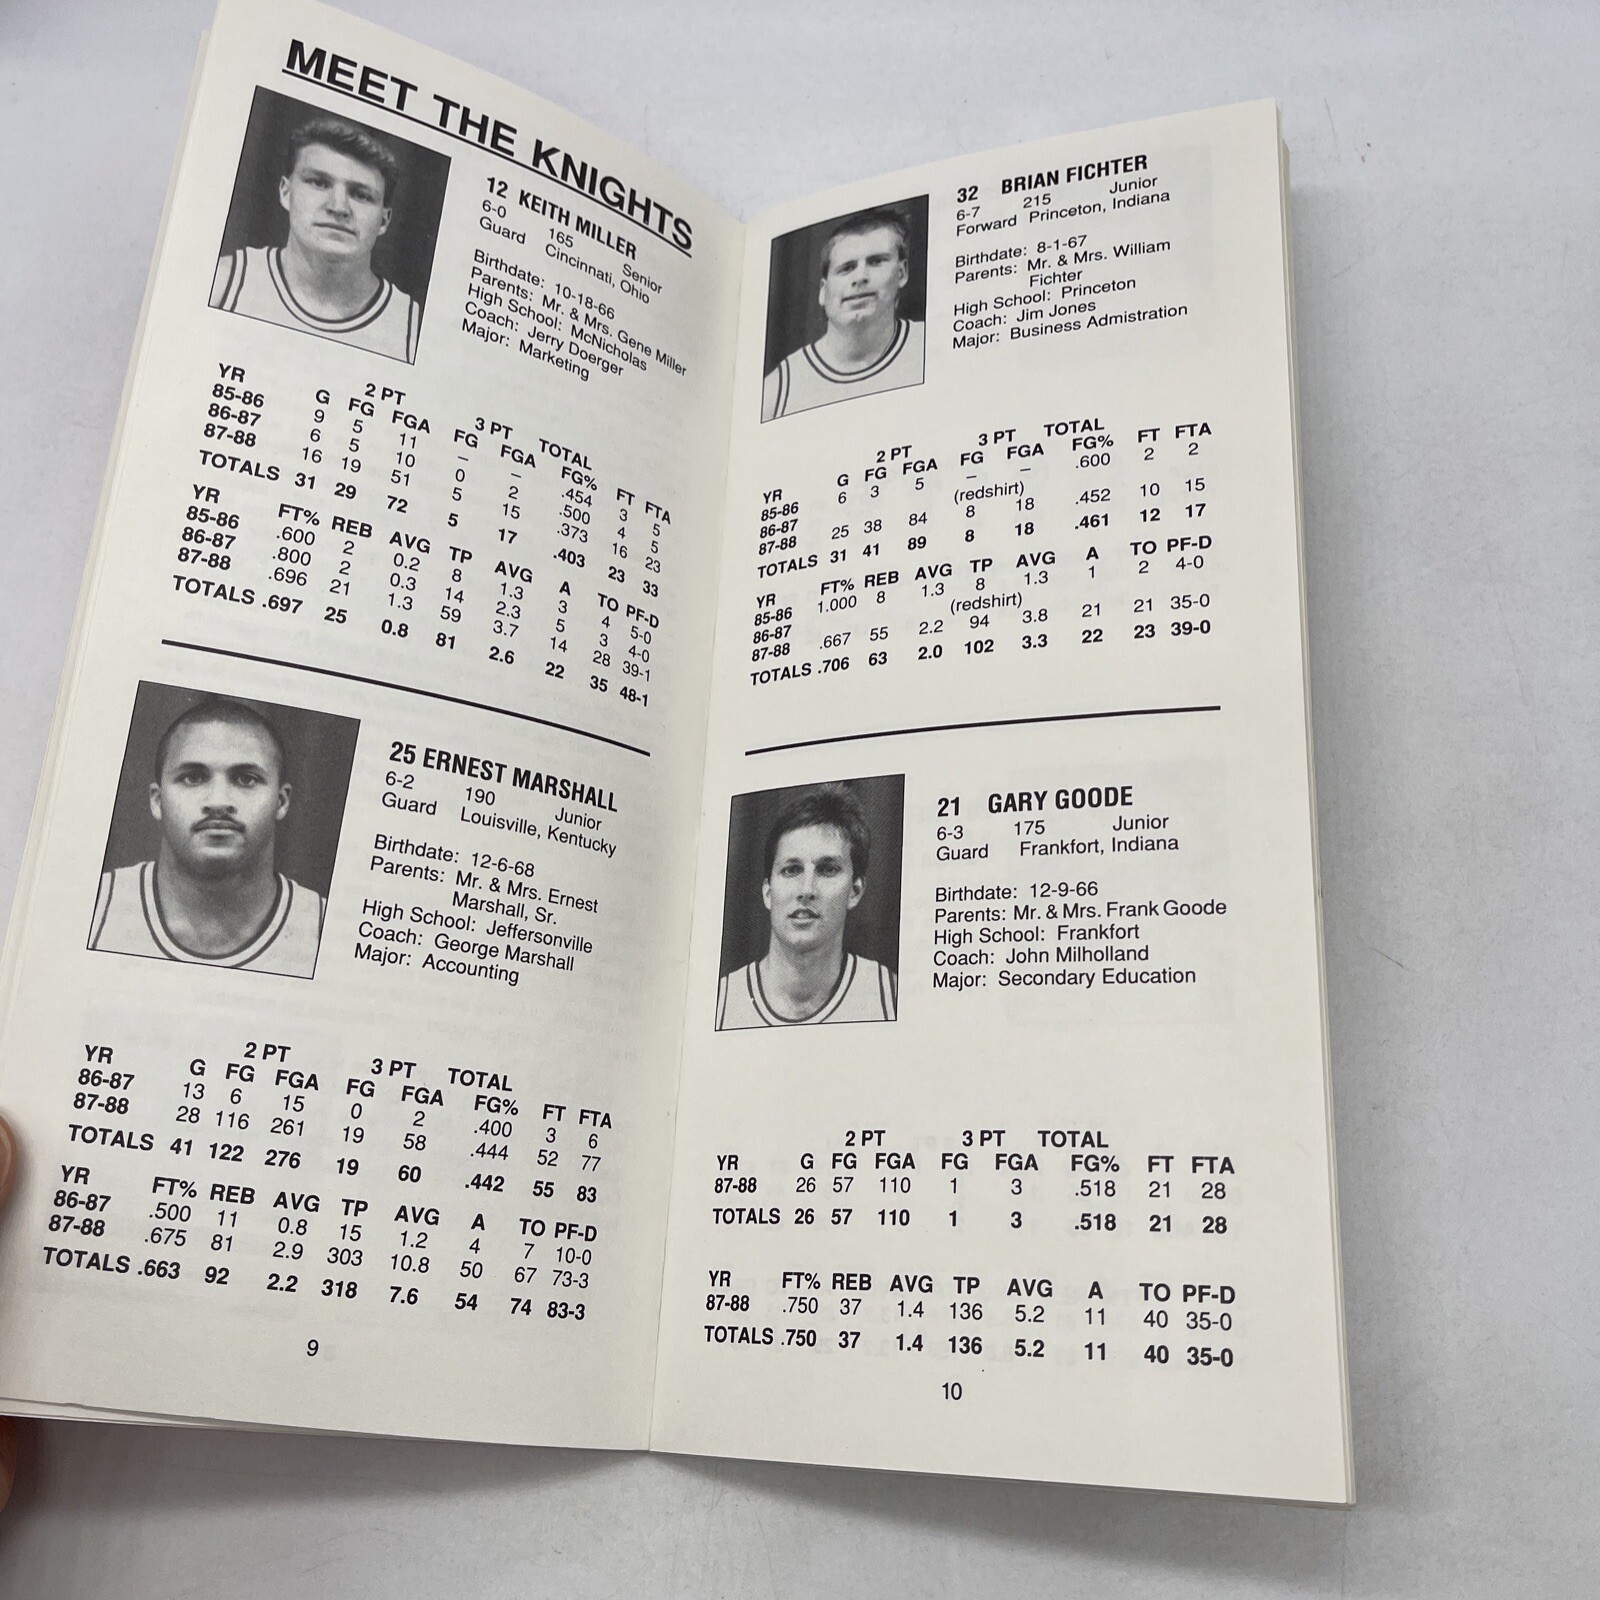 MEET THE KNIGHTS
12 KEITH MILLER
6-0 165 Senior
Guard Cincinnati, Ohio
Birthdate: 10-18-66
Parents: Mr. & Mrs. Gene Miller
High School: McNicholas
Coach: Jerry Doerger
Major: Marketing
2 PT 3 PT TOTAL
YR G FG FGA FG FGA FG% FT FTA
85-86 9 5 11 – – .454 3 5
86-87 6 5 10 0 2 .500 4 5
87-88 16 19 51 5 15 .373 16 23
TOTALS 31 29 72 5 17 .403 23 33
YR FT% REB AVG TP AVG A TO PF-D
85-86 .600 2 0.2 8 1.3 3 4 5-0
86-87 .800 2 0.3 14 2.3 5 3 4-0
87-88 .696 21 1.3 59 3.7 14 28 39-1
TOTALS .697 25 0.8 81 2.6 22 35 48-1
25 ERNEST MARSHALL
6-2 190 Junior
Guard Louisville, Kentucky
Birthdate: 12-6-68
Parents: Mr. & Mrs. Ernest
Marshall, Sr.
High School: Jeffersonville
Coach: George Marshall
Major: Accounting
2 PT 3 PT TOTAL
YR G FG FGA FG FGA FG% FT FTA
86-87 13 6 15 0 2 .400 3 6
87-88 28 116 261 19 58 .444 52 77
TOTALS 41 122 276 19 60 .442 55 83
YR FT% REB AVG TP AVG A TO PF-D
86-87 .500 11 0.8 15 1.2 4 7 10-0
87-88 .675 81 2.9 303 10.8 50 67 73-3
TOTALS .663 92 2.2 318 7.6 54 74 83-3
9
32 BRIAN FICHTER
6-7 215 Junior
Forward Princeton, Indiana
Birthdate: 8-1-67
Parents: Mr. & Mrs. William
Fichter
High School: Princeton
Coach: Jim Jones
Major: Business Admistration
2 PT 3 PT TOTAL
YR G FG FGA FG FGA FG% FT FTA
85-86 6 3 5 – – .600 2 2
86-87 (redshirt)
87-88 25 38 84 8 18 .452 10 15
TOTALS 31 41 89 8 18 .461 12 17
YR FT% REB AVG TP AVG A TO PF-D
85-86 1.000 8 1.3 8 1.3 1 2 4-0
86-87 (redshirt)
87-88 .667 55 2.2 94 3.8 21 21 35-0
TOTALS .706 63 2.0 102 3.3 22 23 39-0
21 GARY GOODE
6-3 175 Junior
Guard Frankfort, Indiana
Birthdate: 12-9-66
Parents: Mr. & Mrs. Frank Goode
High School: Frankfort
Coach: John Milholland
Major: Secondary Education
2 PT 3 PT TOTAL
YR G FG FGA FG FGA FG% FT FTA
87-88 26 57 110 1 3 .518 21 28
TOTALS 26 57 110 1 3 .518 21 28
YR FT% REB AVG TP AVG A TO PF-D
87-88 .750 37 1.4 136 5.2 11 40 35-0
TOTALS .750 37 1.4 136 5.2 11 40 35-0
10